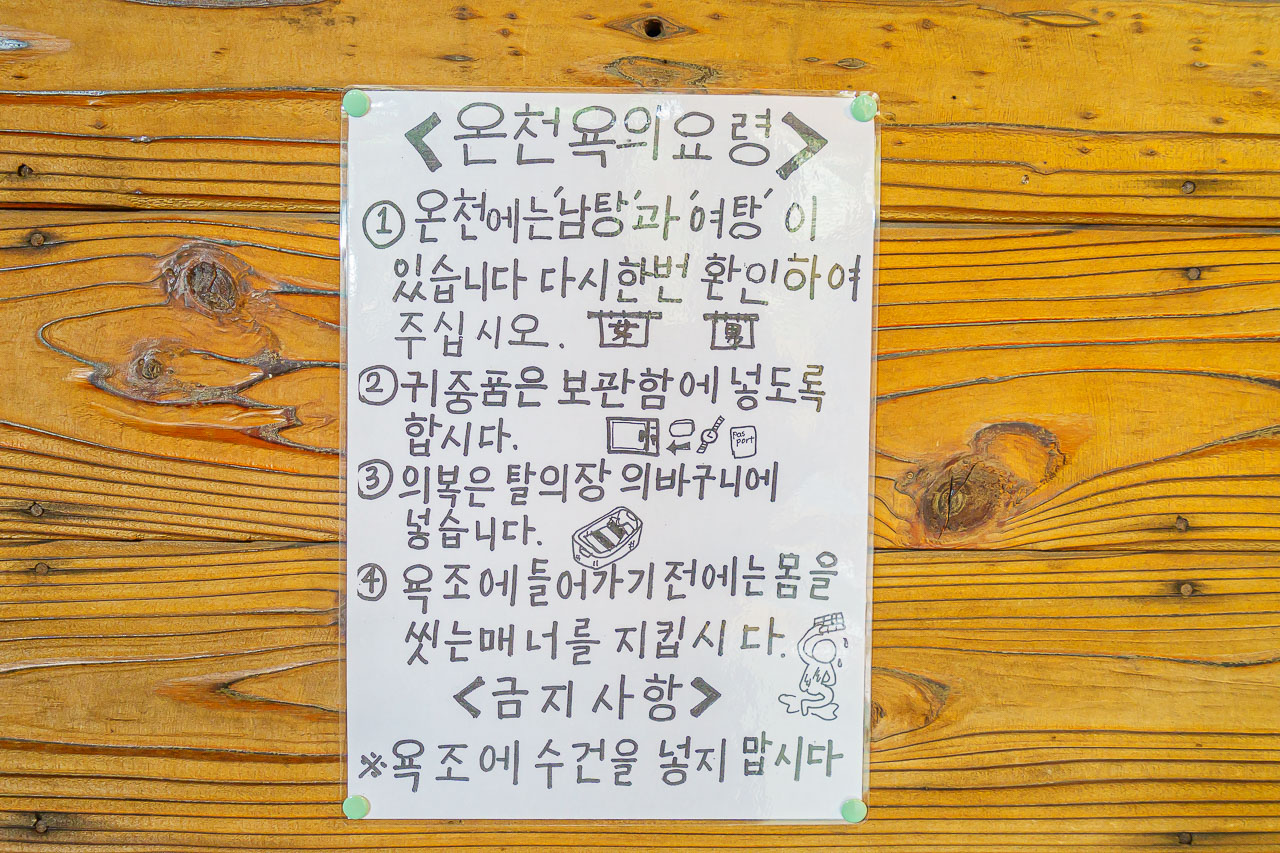 <온천욕의요령>
① 온천에는'남탕'과 '여탕' 이
있습니다 다시한번 환인하여
주십시오. 女 男
② 귀중품은 보관함에 넣도록
합시다. Pas
port
③ 의복은 탈의장 의바구니에
넣습니다.
④ 욕조에들어가기전에는몸을
씻는매너를 지킵시다.
<금지사항>
※욕조에 수건을 넣지 맙시다